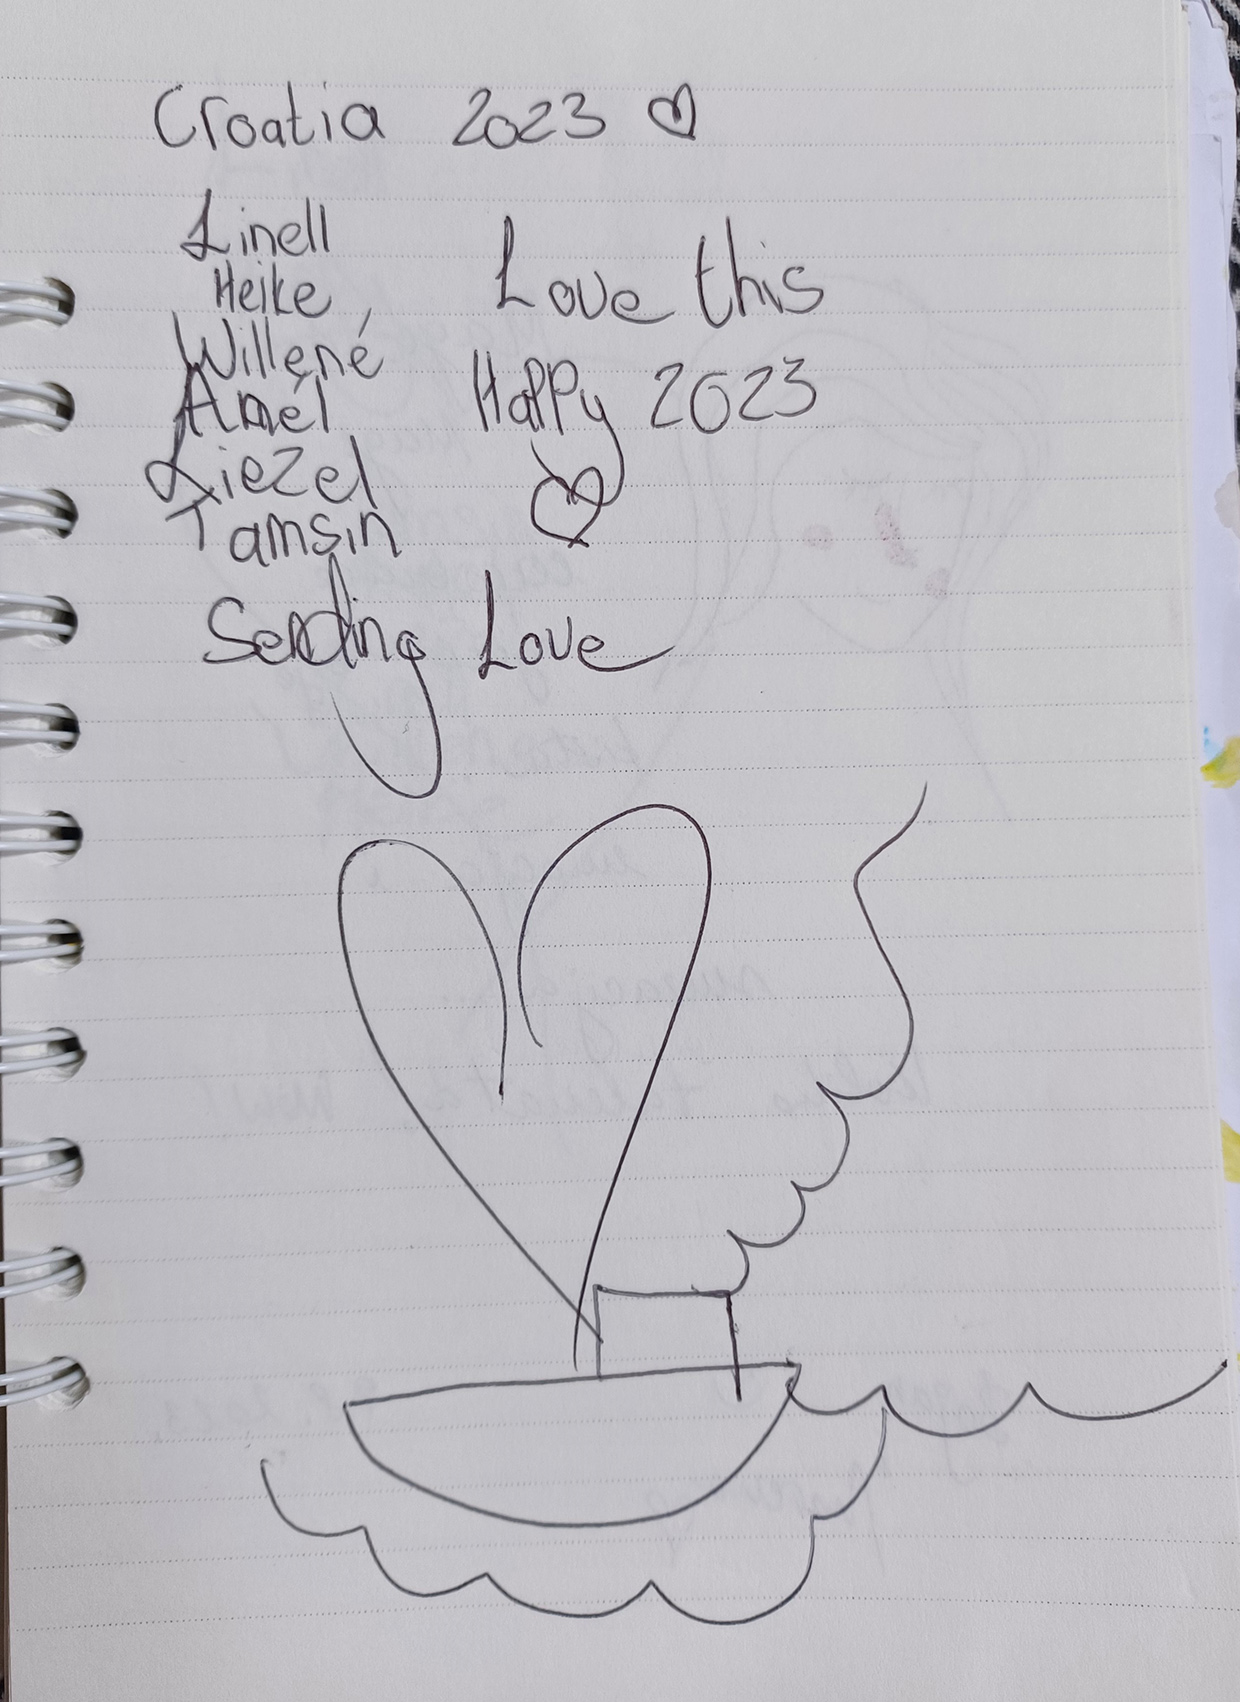 Croatia 2023 ♡
Linell
Heike
Willené
Amél
Liezel
Tamsin
Love this
Happy 2023
♡
Sending Love